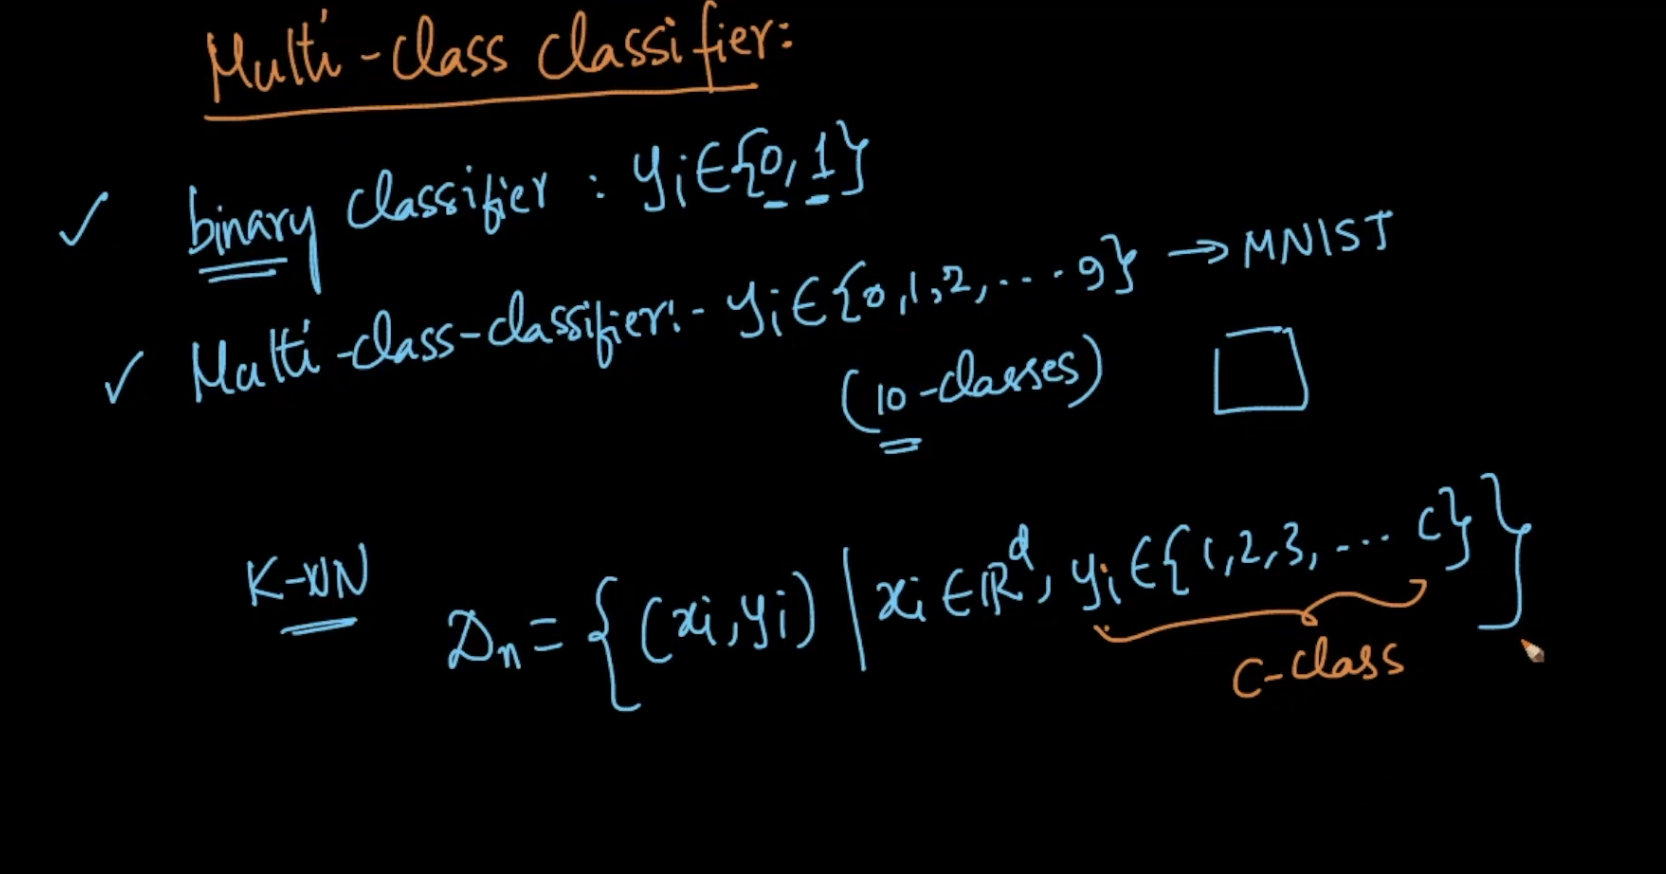 Multi-class classifier:
✓ binary classifier : yi∈{0, 1}
✓ Multi-class-classifier:- yi∈{0,1,2,...9} → MNIST
(10-classes)
K-NN
Dn = {(xi,yi) | xi∈ℝᵈ, yi∈{1,2,3,... c}}
c-class